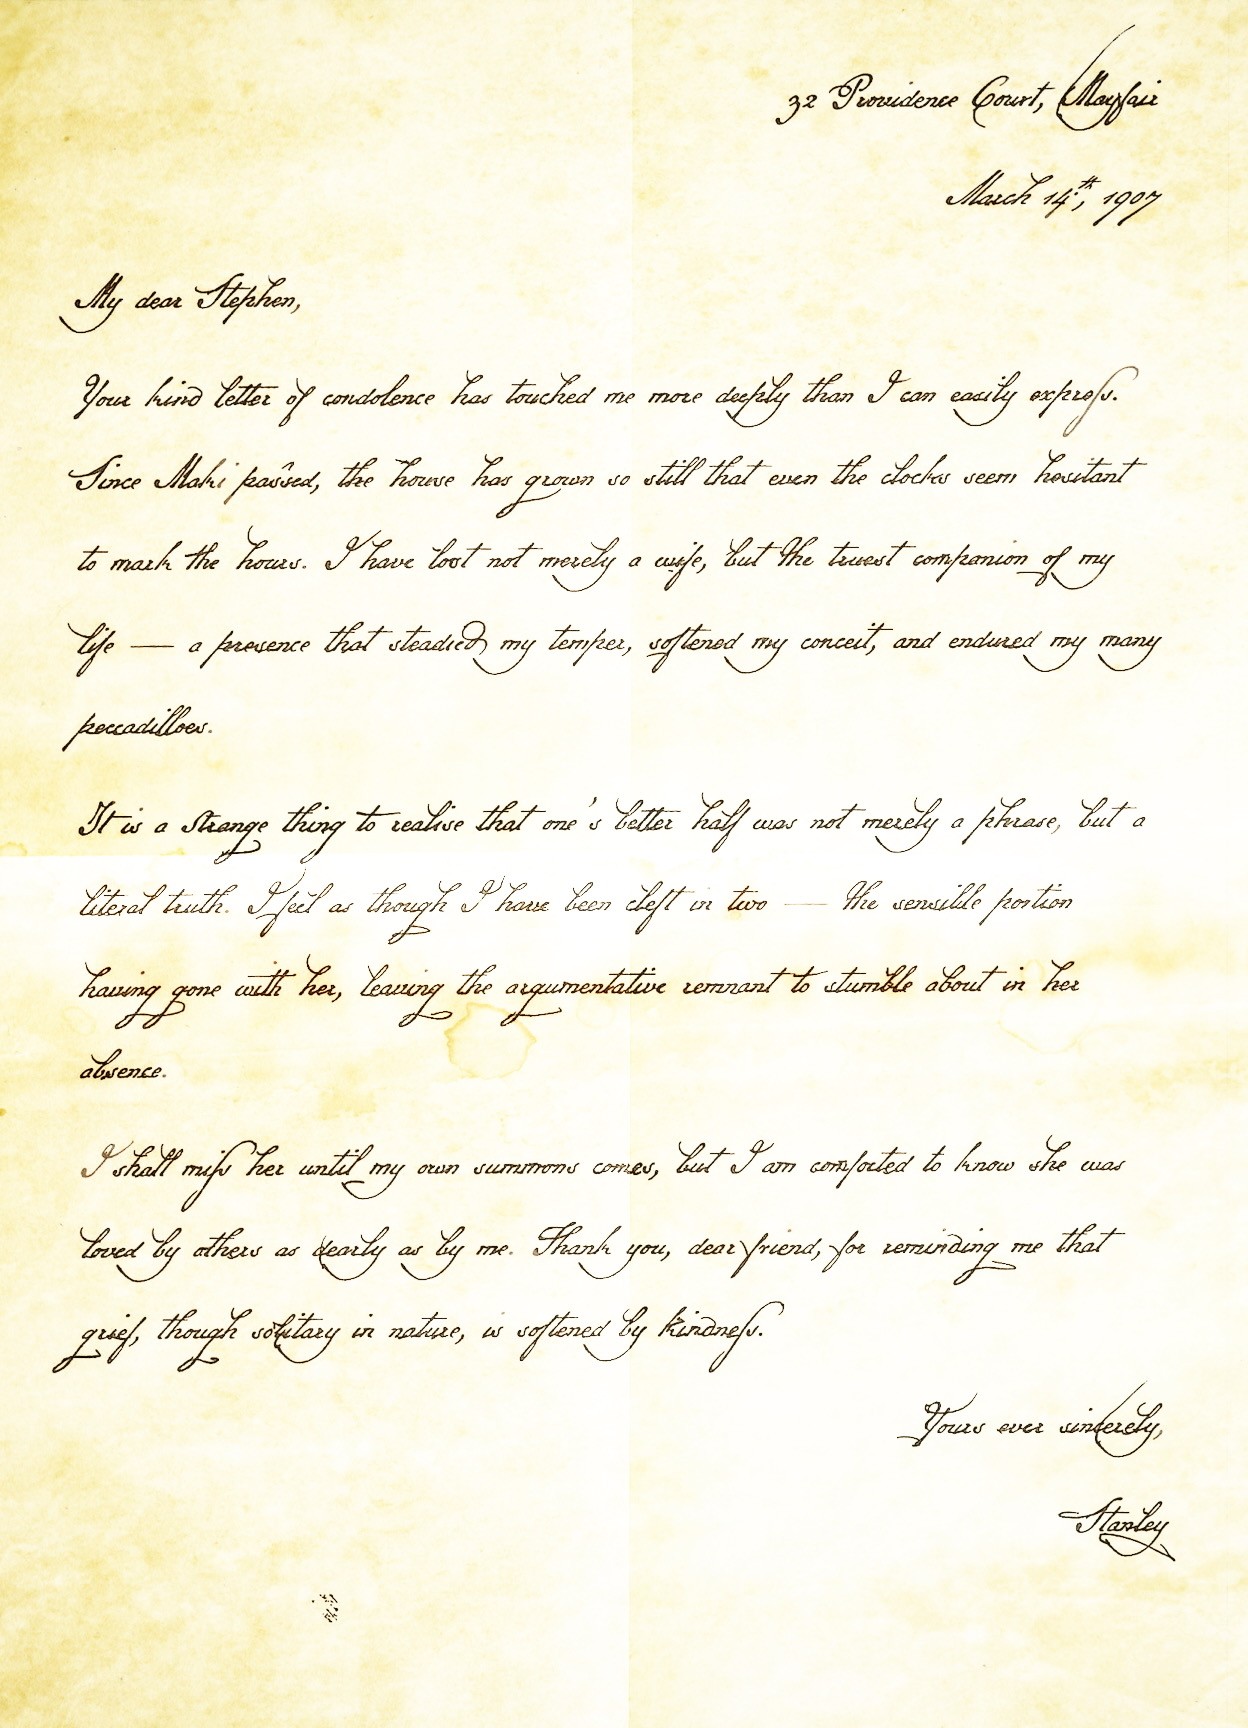 32 Providence Court, Mayfair
March 14th, 1907
My dear Stephen,
Your kind letter of condolence has touched me more deeply than I can easily expreſs.
Since Maki paſsed, the house has grown so still that even the clocks seem hesitant
to mark the hours. I have lost not merely a wife, but the truest companion of my
life — a presence that steadied my temper, softened my conceit, and endured my many
peccadilloes.
It is a strange thing to realise that one's better half was not merely a phrase, but a
literal truth. I feel as though I have been cleft in two — the sensible portion
having gone with her, leaving the argumentative remnant to stumble about in her
absence.
I shall miſs her until my own summons comes, but I am comforted to know she was
loved by others as dearly as by me. Thank you, dear friend, for reminding me that
grief, though solitary in nature, is softened by kindneſs.
Yours ever sincerely,
Stanley